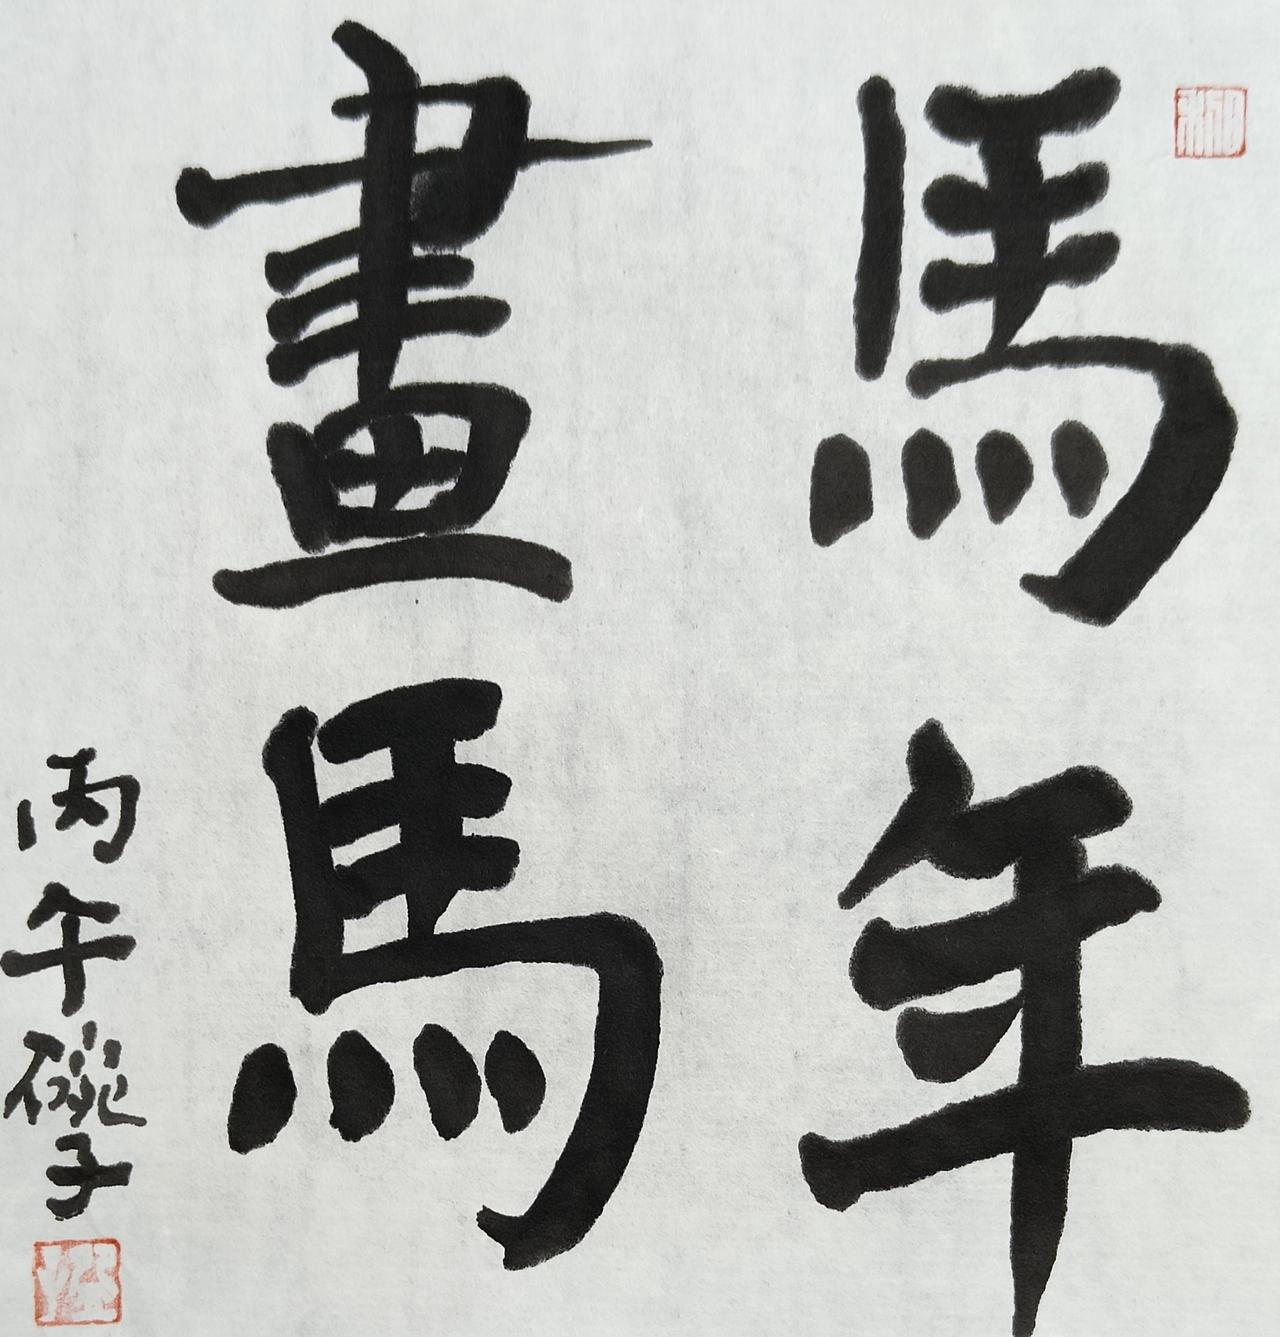 馬年
畫馬
丙午碗子